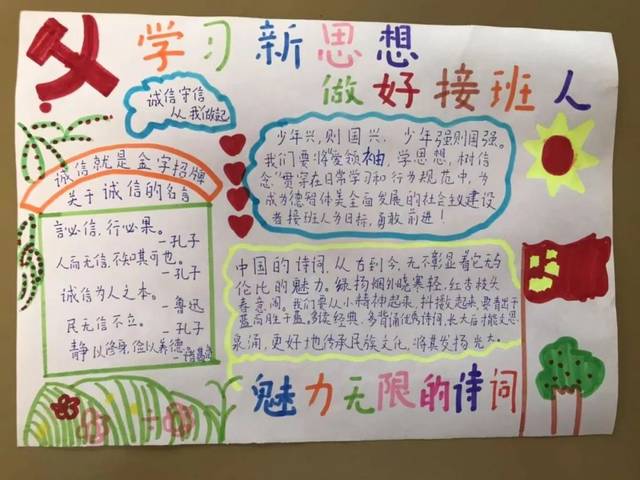 学习新思想
做好接班人
诚信守信
从我做起
诚信就是金字招牌
关于诚信的名言
言必信，行必果。
—孔子
人而无信，不知其可也。
—孔子
诚信为人之本。
—鲁迅
民无信不立。
—孔子
静以修身，俭以养德
—诸葛亮
少年兴，则国兴，少年强则国强。
我们要将“爱领袖，学思想，树信
念”贯穿在日常学习和行为规范中，为
成为德智体美全面发展的社会主义建设
者接班人为目标，勇敢前进！
中国的诗词，从古到今，无不彰显着它无与
伦比的魅力。绿杨烟外晓寒轻，红杏枝头
春意闹。我们要从小精神起来，抖擞起来，要青出于
蓝而胜于蓝。多读经典，多背诵优秀诗词，长大后才能文思
泉涌，更好地传承民族文化，将其发扬光大。
魅力无限的诗词